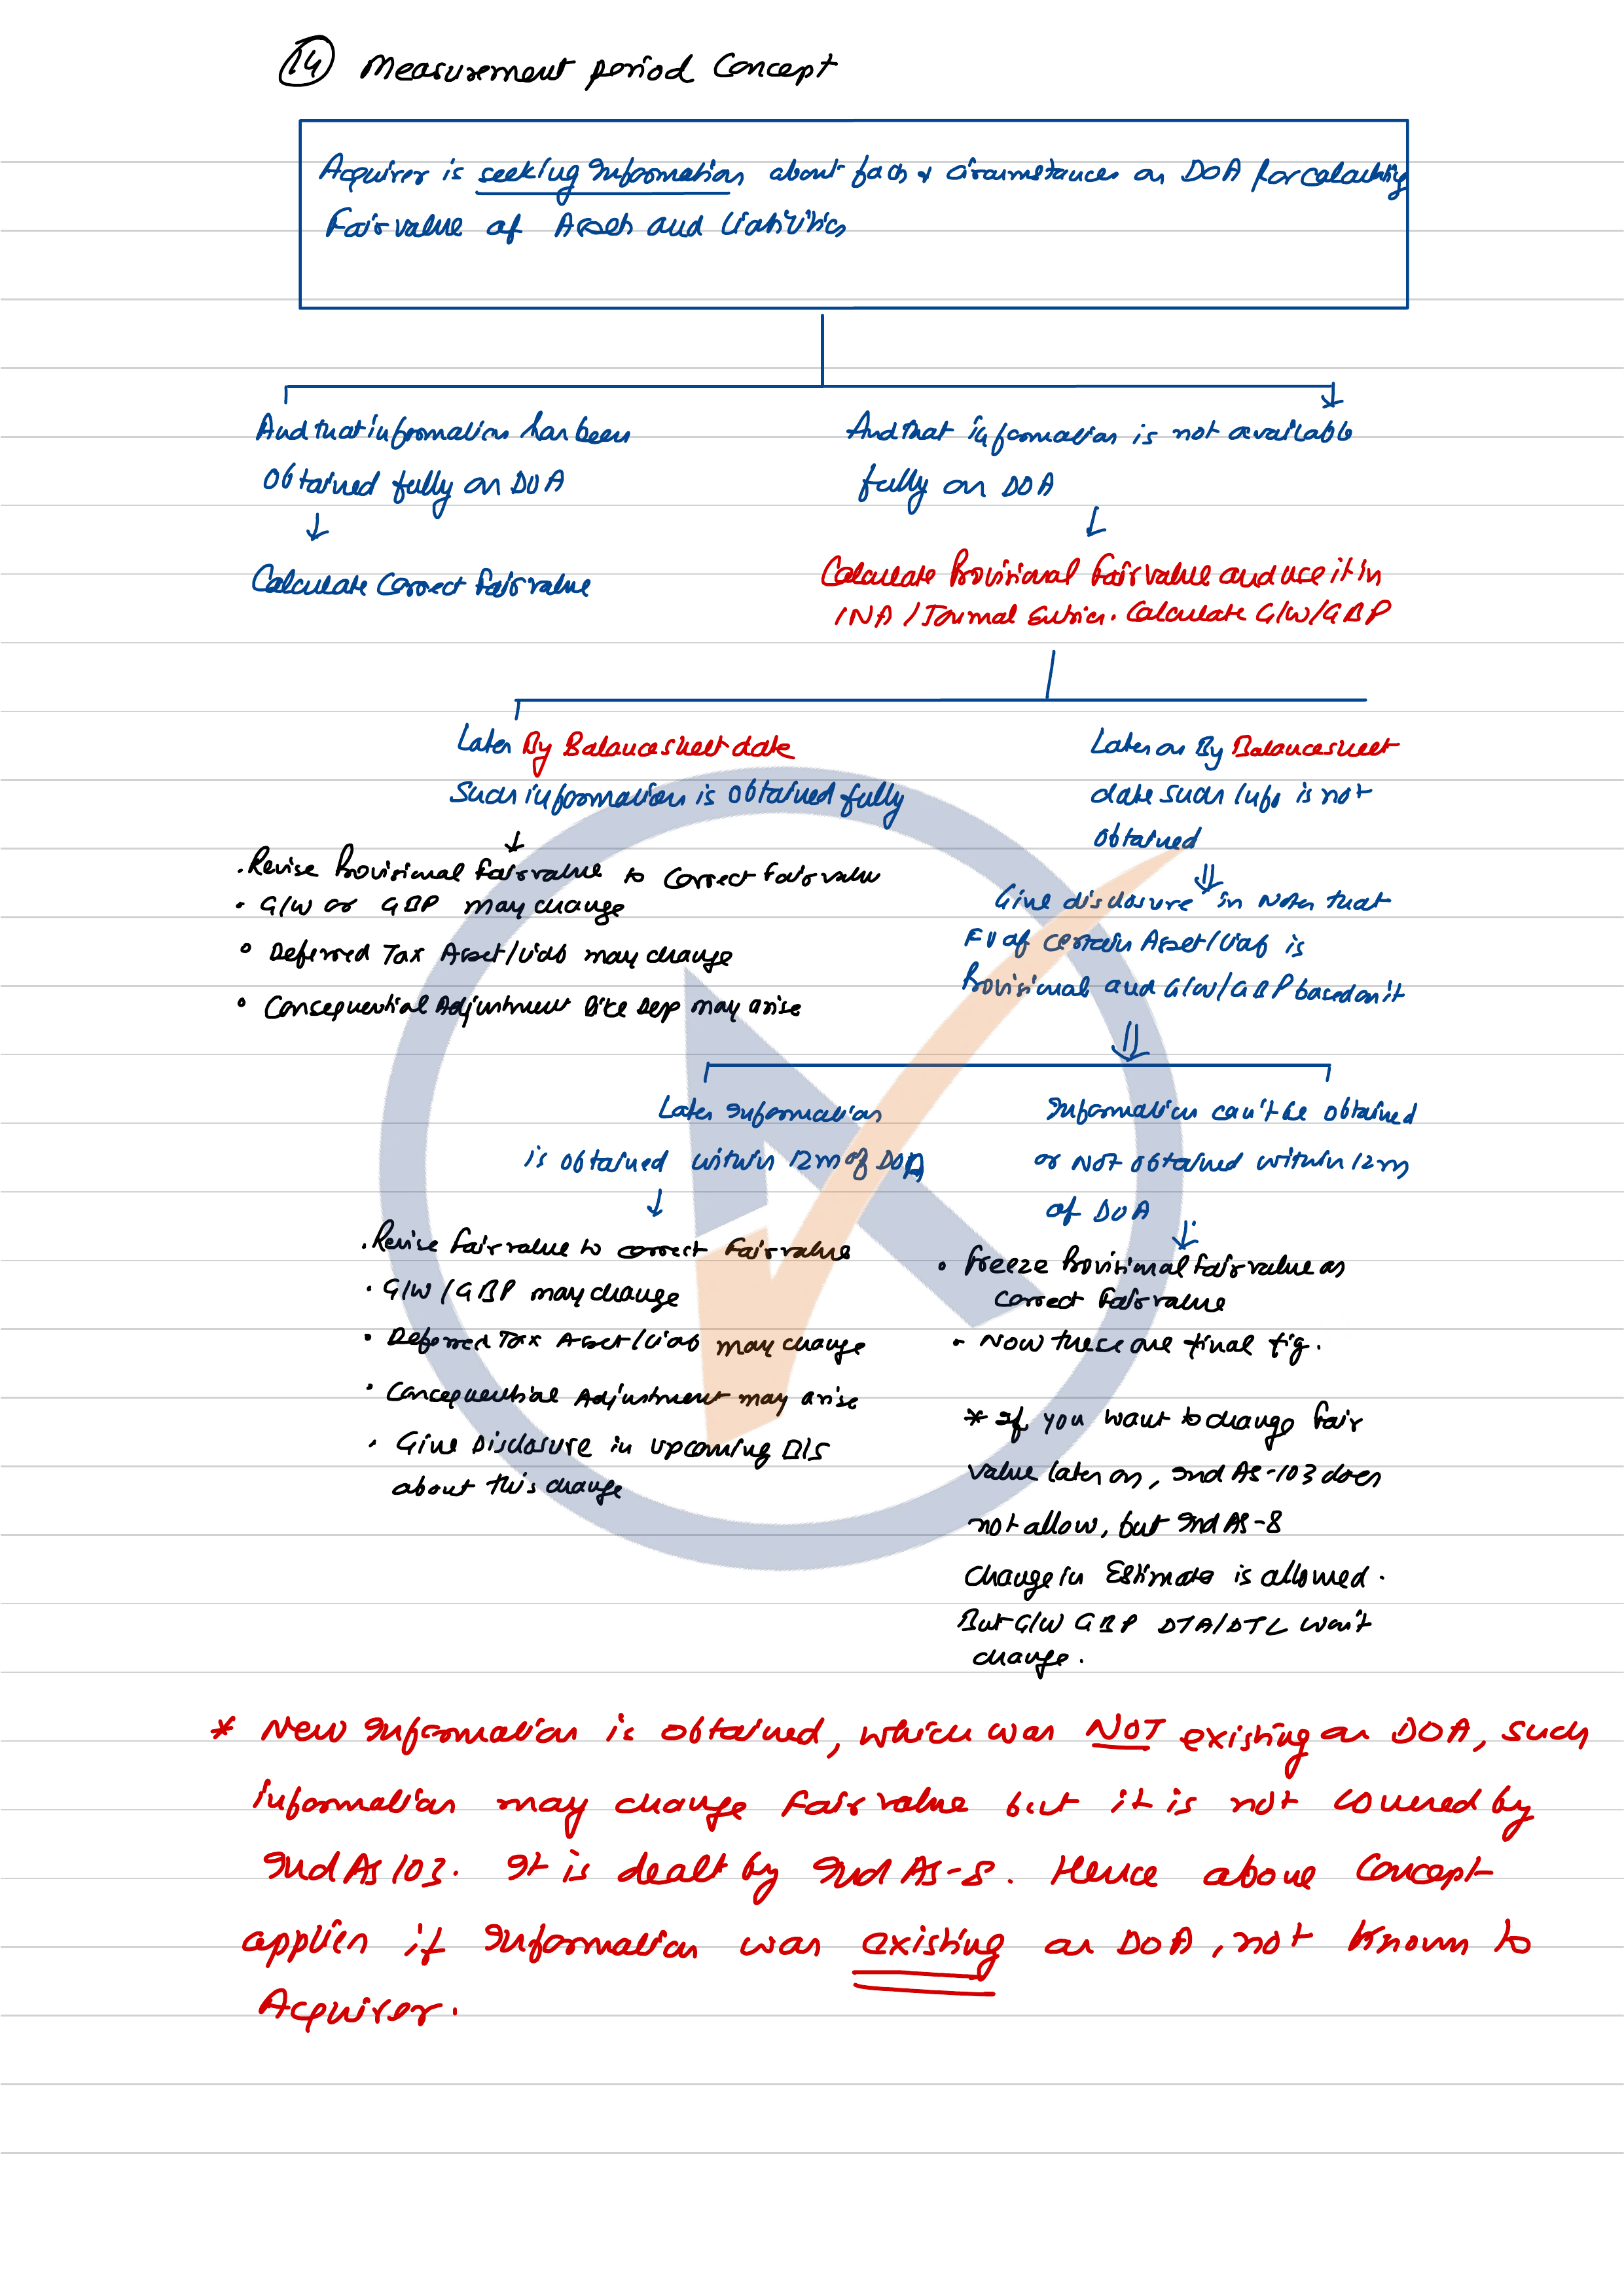 14 Measurement period Concept
Acquirer is seeking Information about facts & circumstances on DOA for calculating
Fair value of Assets and Liabilities
And that information has been
obtained fully on DOA
Calculate Correct Fair value
And that information is not available
fully on DOA
Calculate Provisional Fair value and use it in
INA / Journal Entries. Calculate G/W/GBP
Later By Balance sheet date
Such information is obtained fully
. Revise Provisional Fair value to correct Fair value
• G/W or GBP may change
• Deferred Tax Asset/Liab may change
• Consequential Adjustment like Dep may arise
Later on By Balance sheet
date such Info is not
obtained
Give disclosure in Notes that
FV of certain Asset/Liab is
Provisional and G/W/GBP based on it
Later Information
is obtained within 12m of DOA
. Revise Fair value to correct Fair value
• G/W / GBP may change
• Deferred Tax Asset/Liab may change
• Consequential Adjustment may arise
• Give Disclosure in upcoming B/S
about this change
Information can't be obtained
or Not obtained within 12m
of DOA
• Freeze Provisional Fair value as
correct Fair value
- Now these are final fig.
* If you want to change Fair
value later on, Ind AS-103 does
not allow, but Ind AS-8
change in Estimate is allowed.
But G/W GBP DTA/DTL won't
change.
* New Information is obtained, which was NOT existing on DOA, such
information may change Fair value but it is not covered by
Ind AS 103. It is dealt by Ind AS-8. Hence above Concept
applies if Information was existing on DOA, not known to
Acquirer.